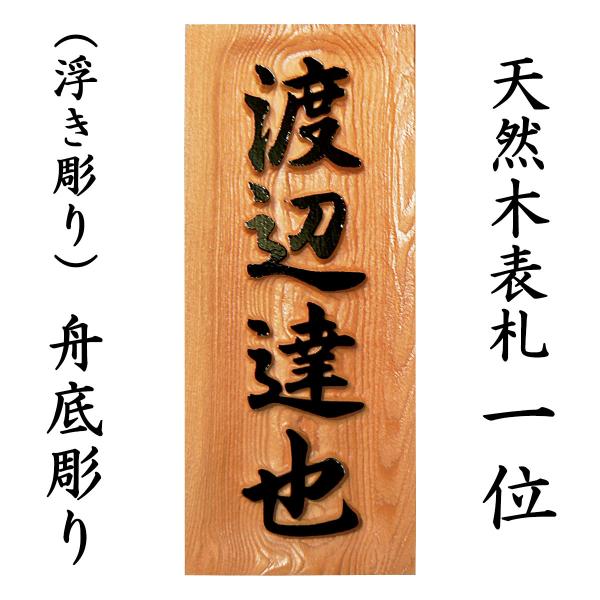 天然木表札 一位
渡辺達也
舟底彫り
（浮き彫り）